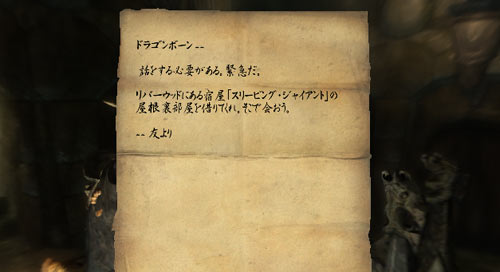 ドラゴンボーン--
話をする必要がある。緊急だ。
リバーウッドにある宿屋「スリーピング・ジャイアント」の
屋根裏部屋を借りてくれ。そこで会おう。
-- 友より